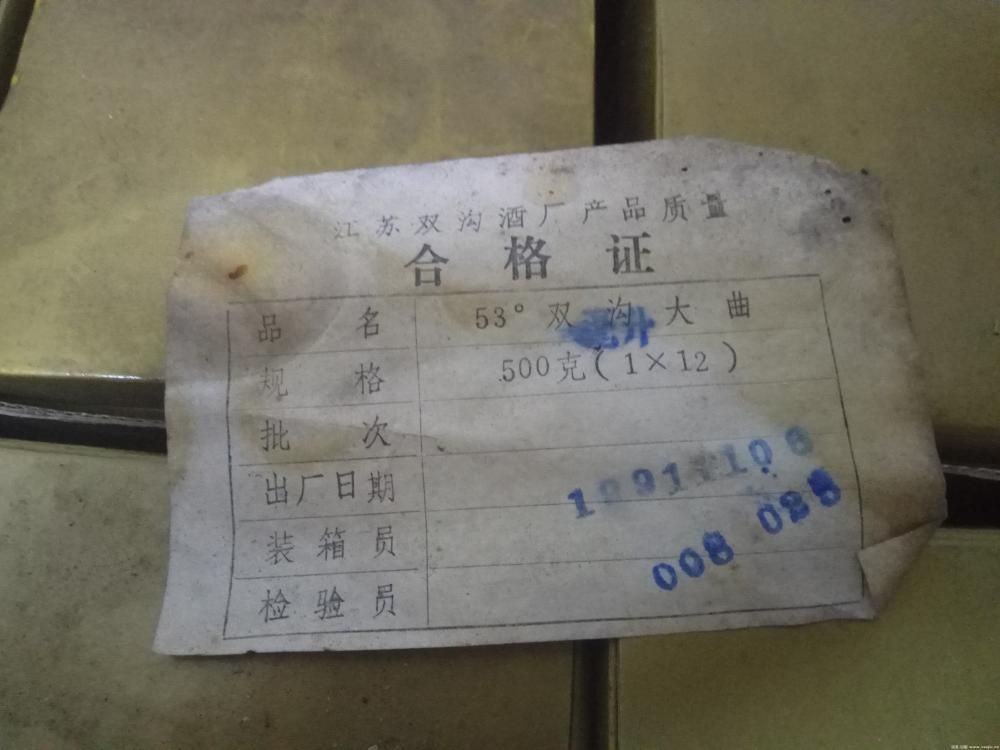 江苏双沟酒厂产品质量
合格证
品名 53°双沟大曲
规格 500克(1×12)
批次
出厂日期 19911106
装箱员 008 028
检验员